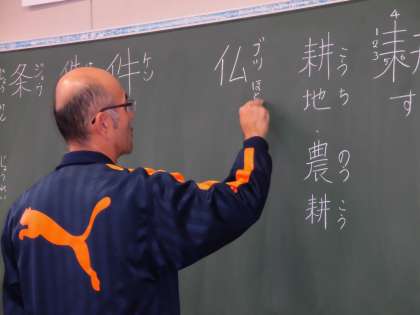 す
耕地・農耕
こうち
のうこう
仏
ブツ
ほと
件
ケン
件
条
ジョウ